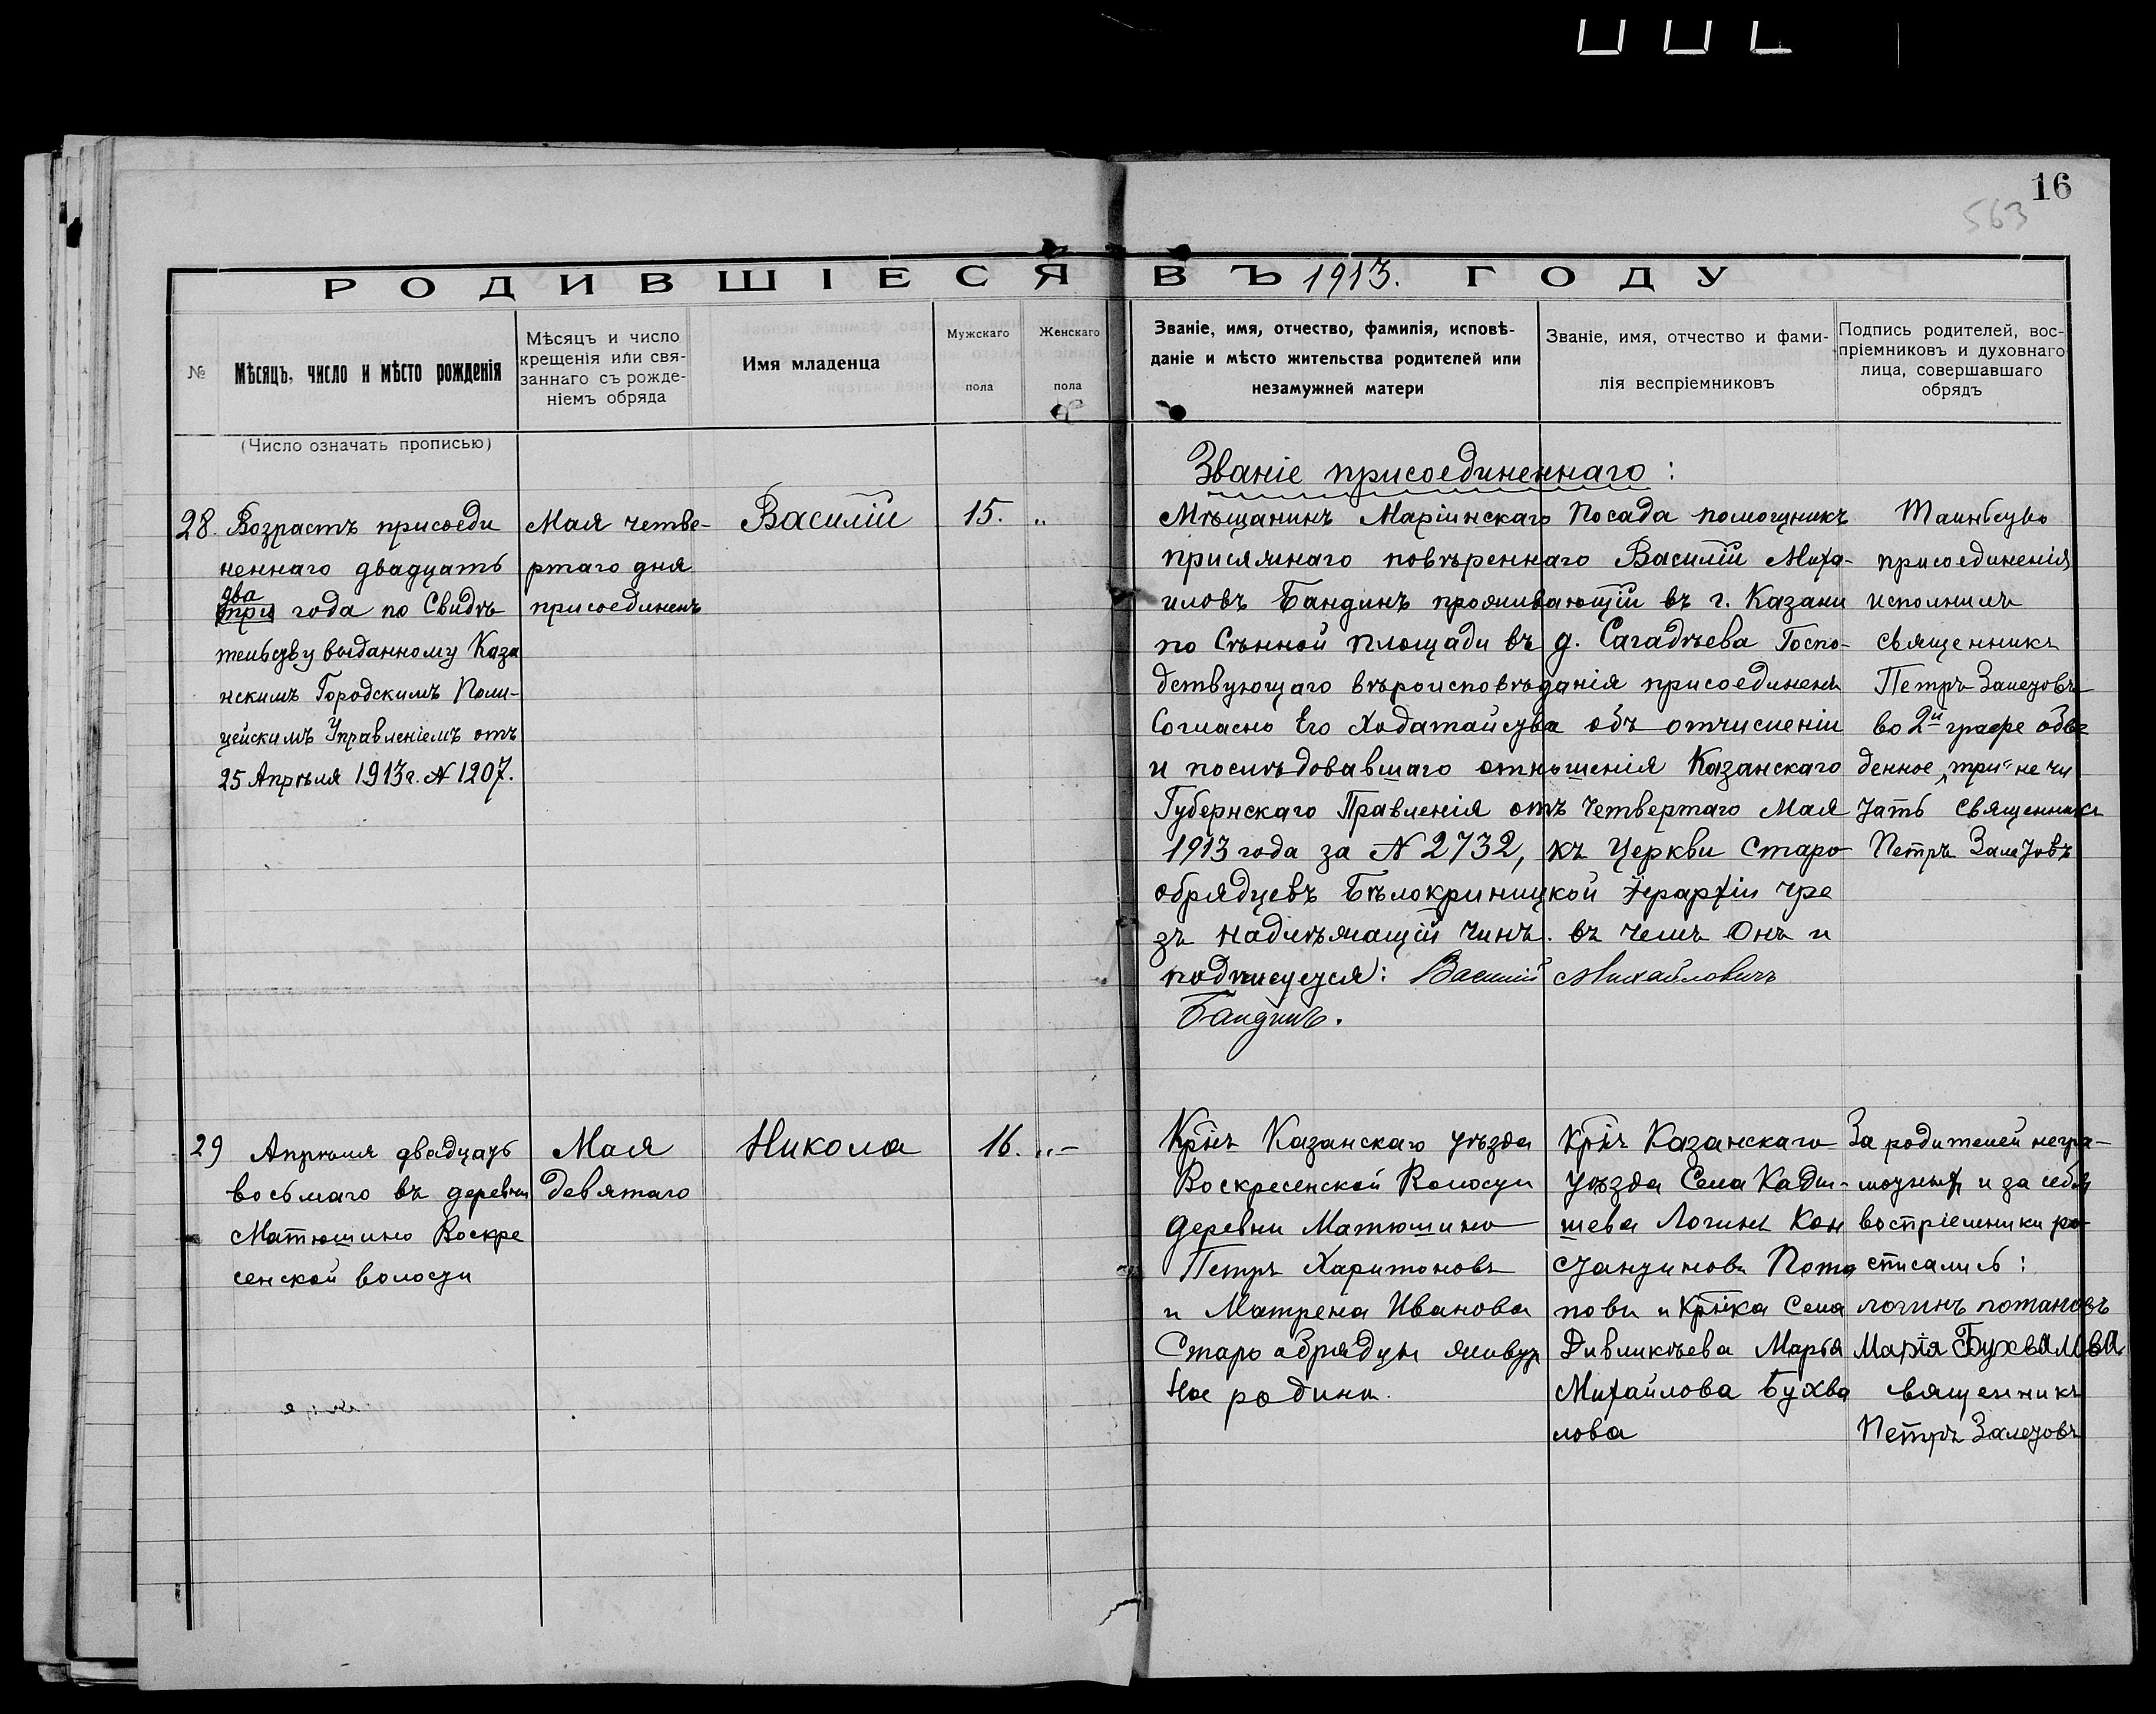 16
563
РОДИВШІЕСЯ ВЪ 1913. ГОДУ
№
Мѣсяцъ, число и мѣсто рожденія
Мѣсяцъ и число
крещенія или свя-
заннаго съ рожде-
ніемъ обряда
Имя младенца
Мужскаго
пола
Женскаго
пола
Званіе, имя, отчество, фамилія, исповѣ-
даніе и мѣсто жительства родителей или
незамужней матери
Званіе, имя, отчество и фами-
лія веспріемниковъ
Подпись родителей, вос-
пріемниковъ и духовнаго
лица, совершавшаго
обрядъ
(Число означать прописью)
Званіе присоединеннаго:
28. Возрастъ присоеди
неннаго двадцать
два
три года по Свидѣ
тельству выданному Каза
нскимъ Городскимъ Поли-
цейскимъ Управленіемъ отъ
25 Апрѣля 1913 г. № 1207.
Мая четве-
ртаго дня
присоединенъ
Василій
15.
„
Мѣщанинъ Маріинскаго Посада помощникъ
присяжнаго повѣреннаго Василій Миха-
иловъ Бандинъ проживающій въ г. Казани
по Сѣнной площади въ д. Сагадѣева Госпо-
дствующаго вѣроисповѣданія присоединенъ
Согласно Его Ходатайства объ отчисленіи
и послѣдовавшаго отношенія Казанскаго
Губернскаго Правленія отъ Четвертаго Мая
1913 года за № 2732, къ Церкви Старо
обрядцевъ Бѣлокриницкой Іерархіи чре
зъ надлѣжащій Чинъ. въ чемъ Онъ и
подписуется: Василий Михайловичъ
Бандинъ.
Таинство
присоединенія
исполнилъ
священникъ
Петръ Залетовъ
во 2й графе обве
денное „три“ не чи
тать священникъ
Петръ Залетовъ
29 Апрѣля двадцать
восьмаго въ деревни
Матюшино Воскре
сенской волости
Мая
девятаго
Никола
16.
„-
Кр̃нъ Казанскаго уѣзда
Воскресенской Волости
деревни Матюшино
Петръ Харитоновъ
и Матрена Иванова
Старообрядцы живут
на родине.
Кр̃нъ Казанскаго
Уѣзда Села Кады-
шева Логинъ Кон
стантиновъ Пота
повъ и Кр̃нка Села
Дивликѣева Марья
Михайлова Бухва
лова
За родителей негра-
мотных и за себя
востріемники ро-
списались:
логинъ потаповъ
Маріа Бухвалова
священникъ
Петръ Залетовъ